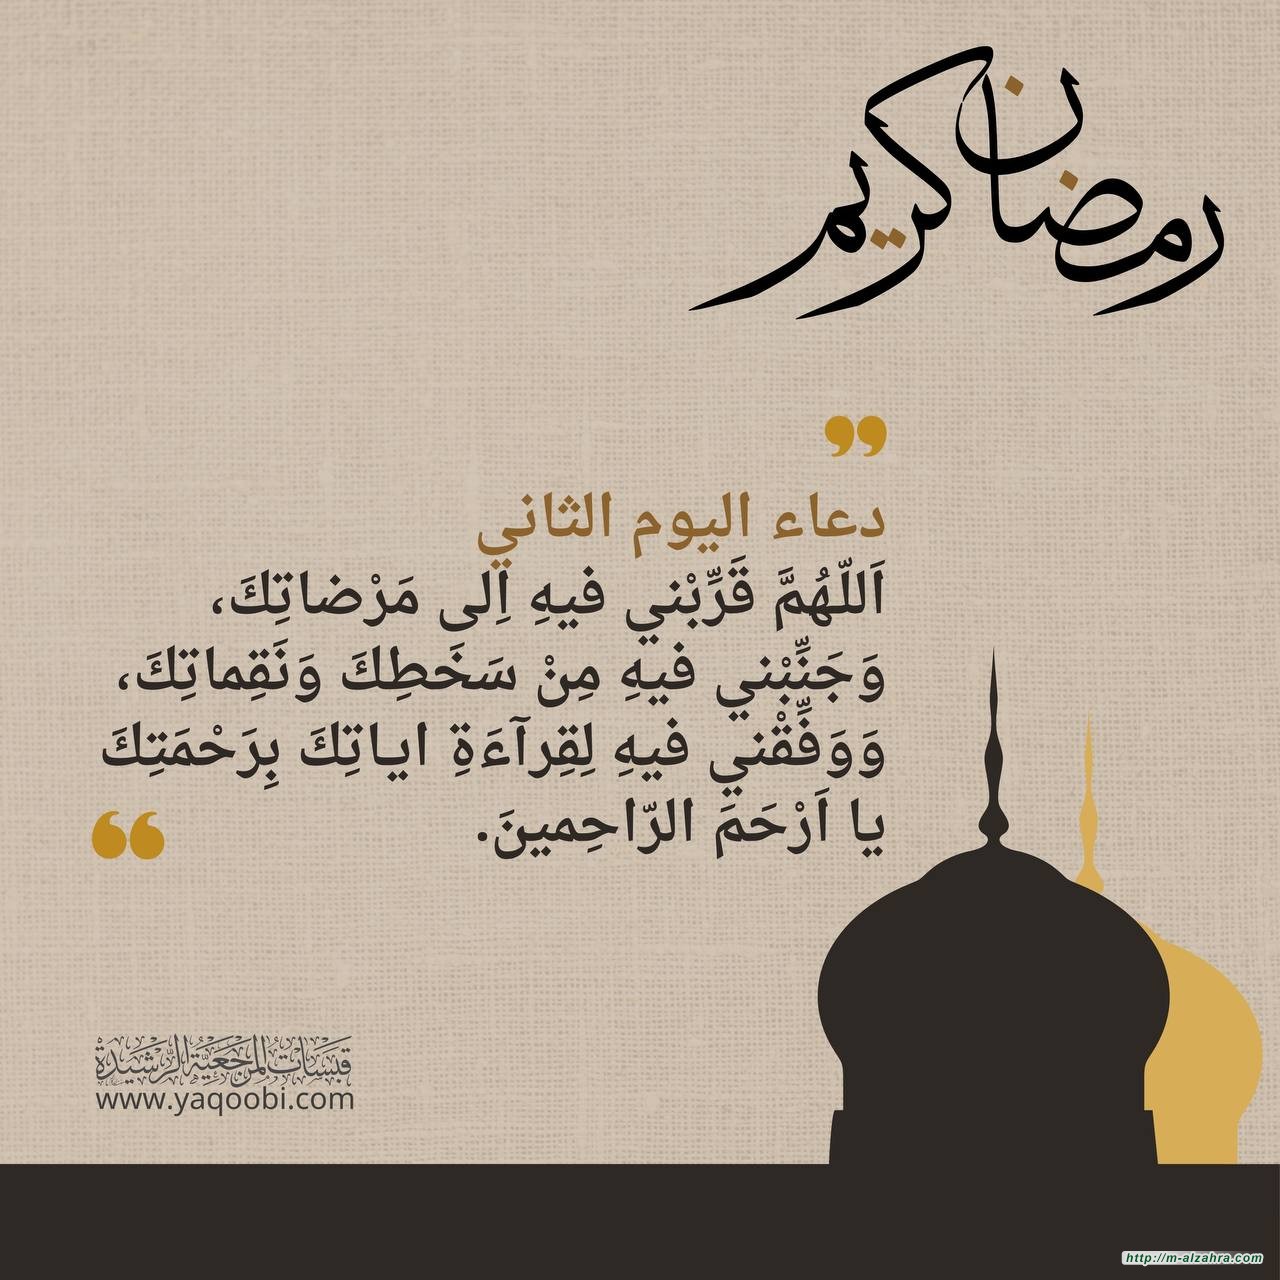 رمضان كريم
دعاء اليوم الثاني
اَللّهُمَّ قَرِّبْني فيهِ اِلى مَرْضاتِكَ،
وَجَنِّبْني فيهِ مِنْ سَخَطِكَ وَنَقِماتِكَ،
وَوَفِّقْني فيهِ لِقِرآءَةِ اياتِكَ بِرَحْمَتِكَ
يا اَرْحَمَ الرّاحِمينَ.
قبَسَات المرجَعيَّة الرَّشيدَة
www.yaqoobi.com
http://m-alzahra.com